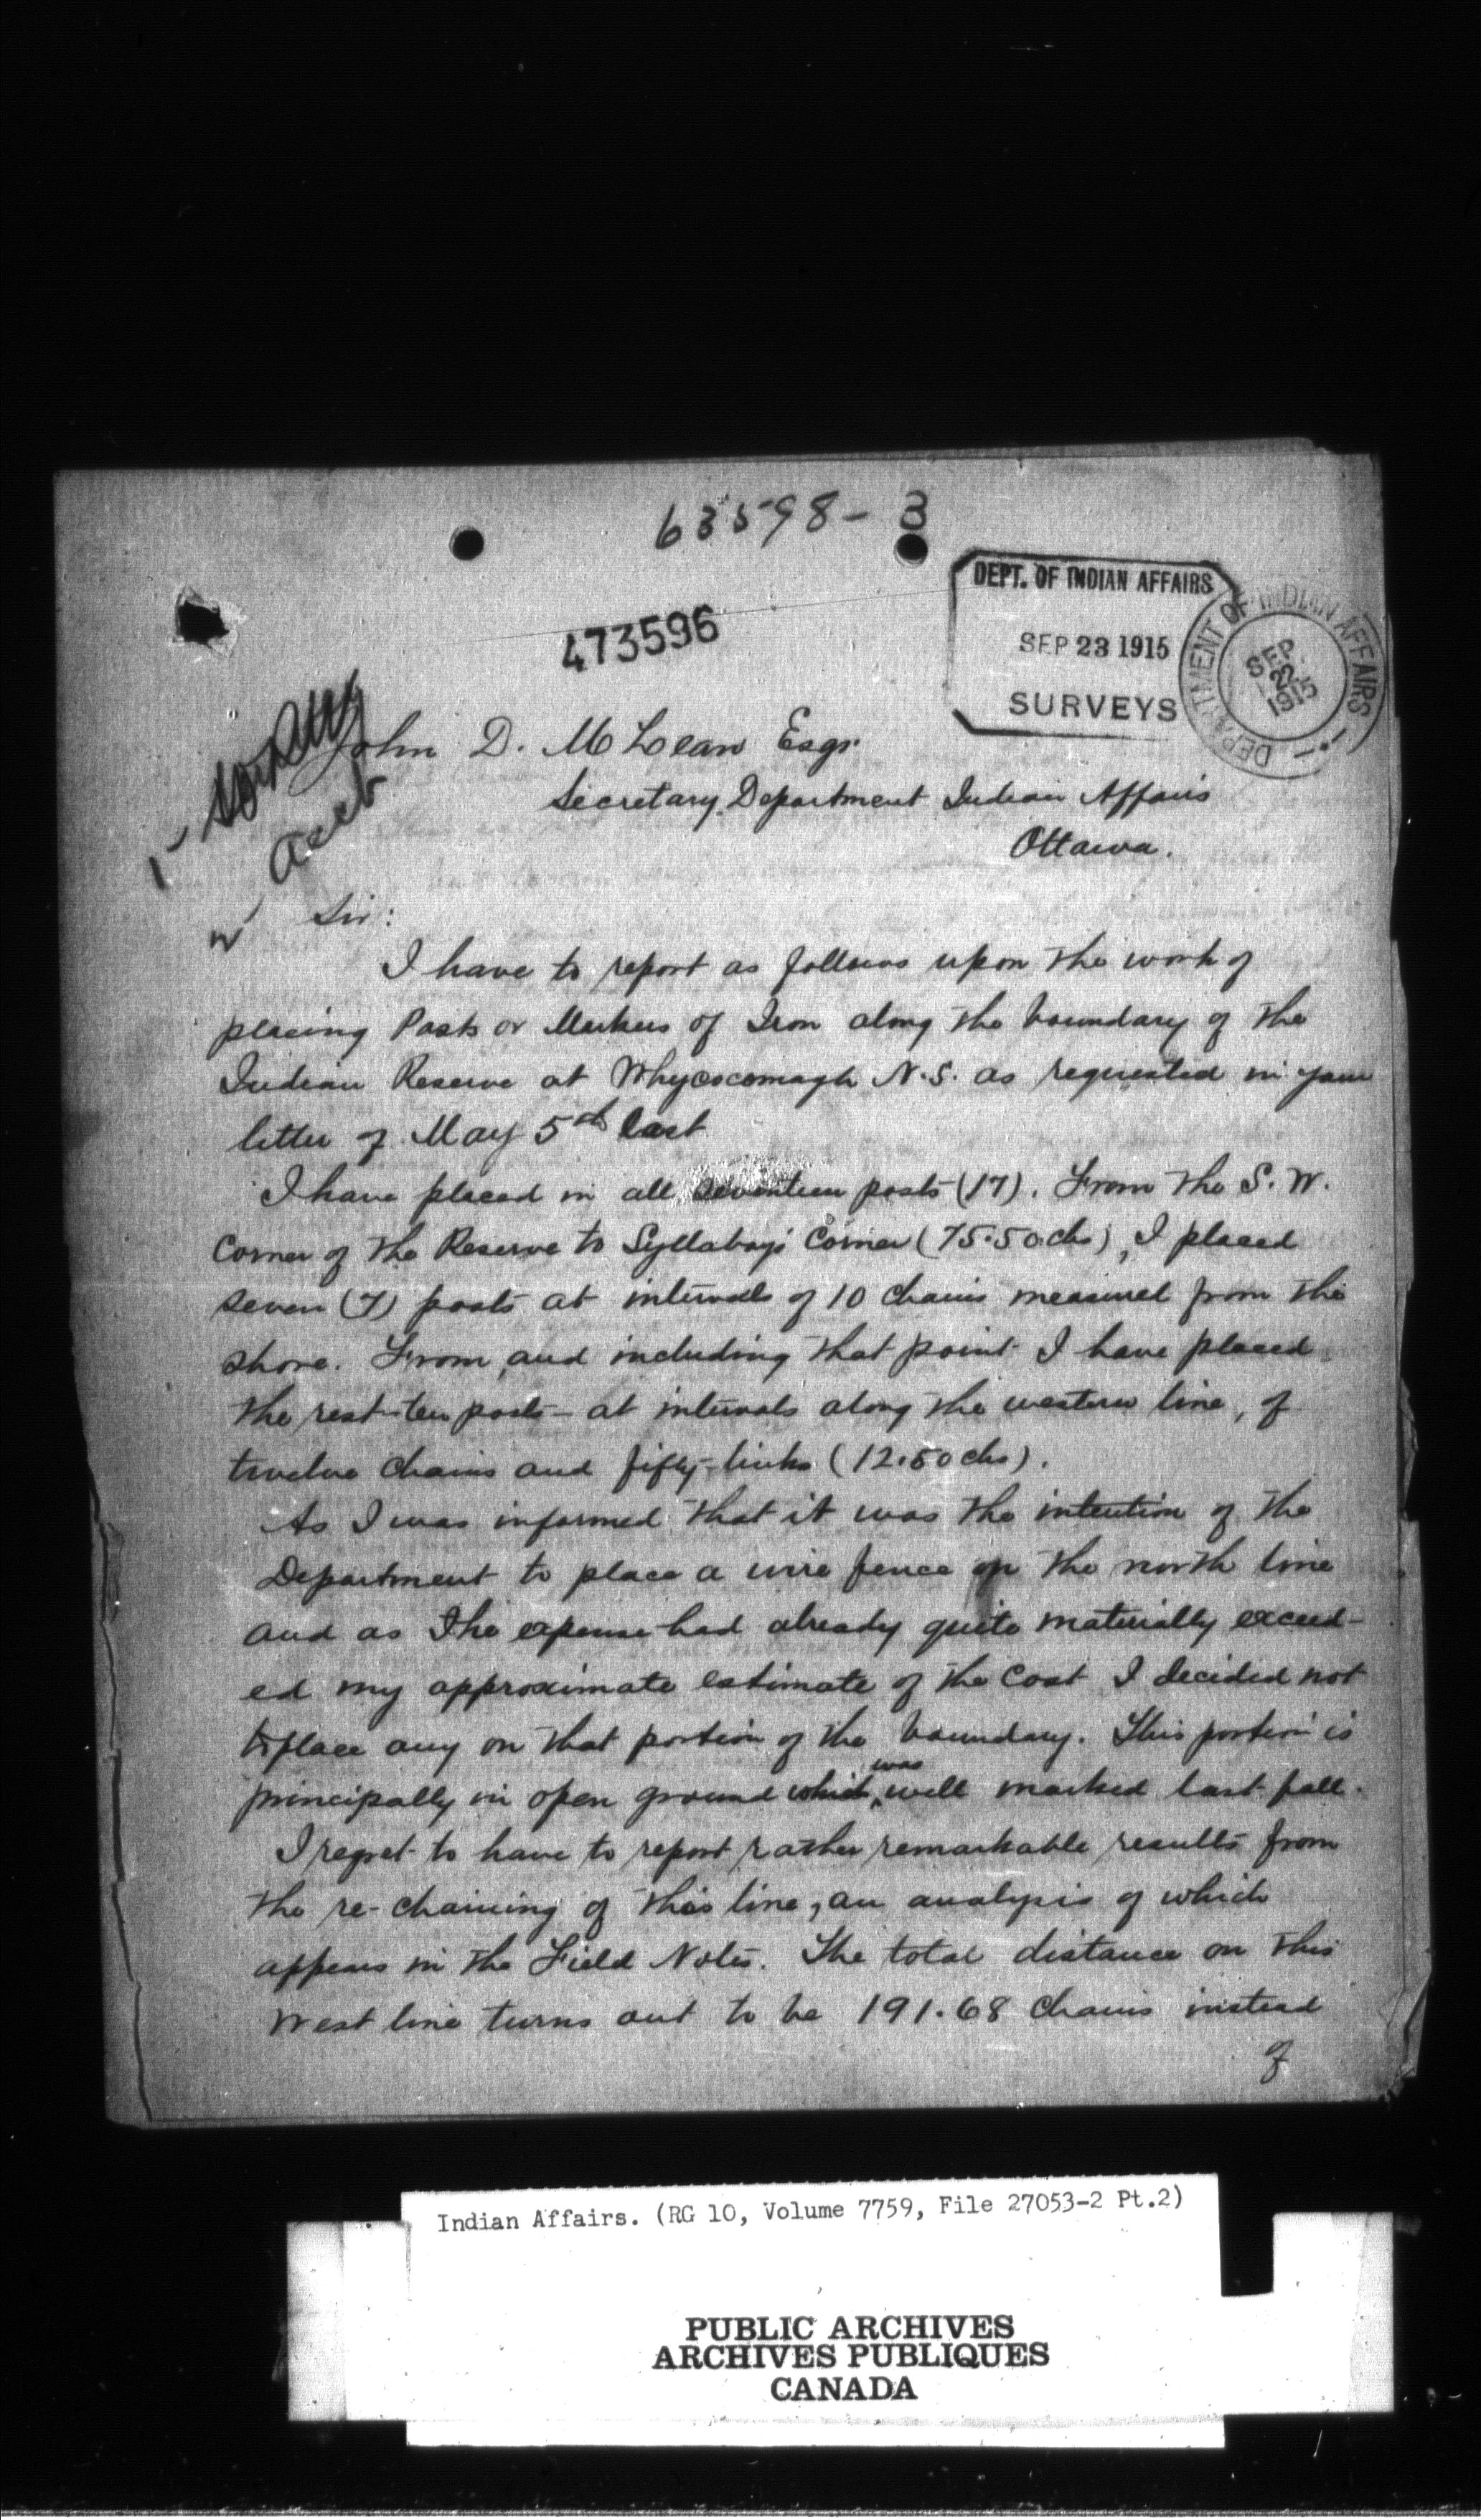 63598-3
473596
DEPT. OF INDIAN AFFAIRS
SEP 23 1915
SURVEYS
DEPARTMENT OF INDIAN AFFAIRS
SEP. 22 1915
John D. McLean Esqr.
Secretary Department Indian Affairs
Ottawa.
Sir:
I have to report as follows upon the work of
placing Posts or Markers of Iron along the boundary of the
Indian Reserve at Whycocomagh N.S. as requested in your
letter of May 5th last
I have placed in all seventeen posts (17). From the S. W.
Corner of the Reserve to Syllaboy's Corner (75.50 chs), I placed
seven (7) posts at intervals of 10 chains measured from the
shore. From, and including that point I have placed
the rest-ten posts- at intervals along the western line, of
twelve chains and fifty-links (12.50 chs).
As I was informed that it was the intention of the
Department to place a wire fence on the north line
and as the expense had already quite materially exceed-
ed my approximate estimate of the cost I decided not
to place any on that portion of the boundary. This portion is
principally in open ground which was well marked last fall.
I regret to have to report rather remarkable results from
the re-chaining of this line, an analysis of which
appears in the Field Notes. The total distance on this
West line turns out to be 191.68 chains instead
of
Indian Affairs. (RG 10, Volume 7759, File 27053-2 Pt.2)
PUBLIC ARCHIVES
ARCHIVES PUBLIQUES
CANADA